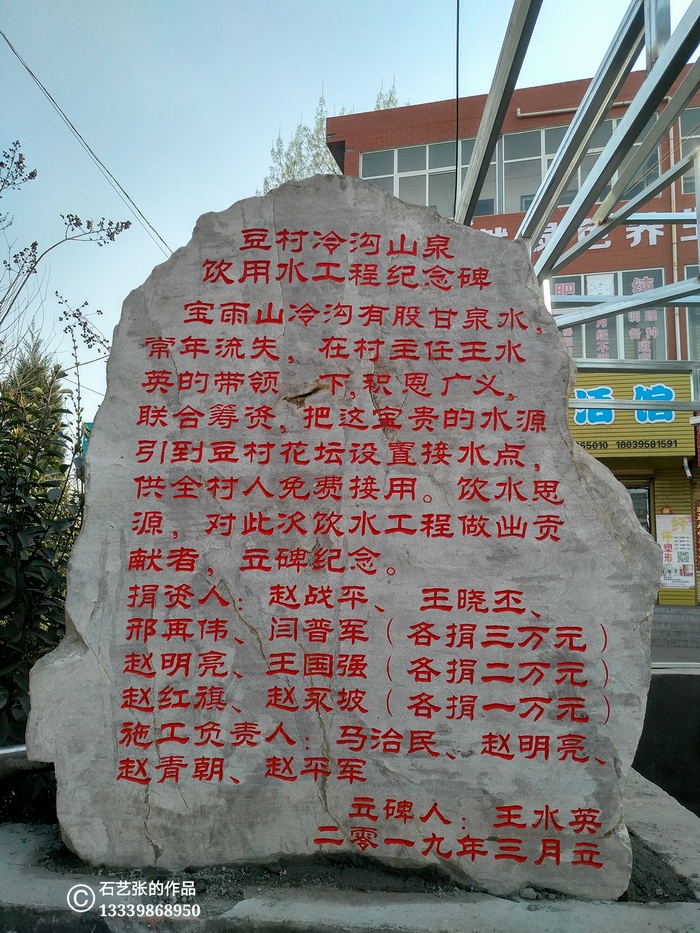 豆村冷沟山泉
饮用水工程纪念碑
宝雨山冷沟有股甘泉水，
常年流失，在村主任王水
英的带领 下，积恩广义，
联合筹资，把这宝贵的水源
引到豆村花坛设置接水点，
供全村人免费接用。饮水思
源，对此次饮水工程做出贡
献者，立碑纪念。
捐资人：赵战平、王晓丕、
邢再伟、闫普军（各捐三万元）
赵明亮、王国强（各捐二万元）
赵红旗、赵永坡（各捐一万元）
施工负责人：马治民、赵明亮、
赵青朝、赵平军
立碑人：王水英
二零一九年三月立
65010 18039581591
活馆
©石艺张的作品
13339868950